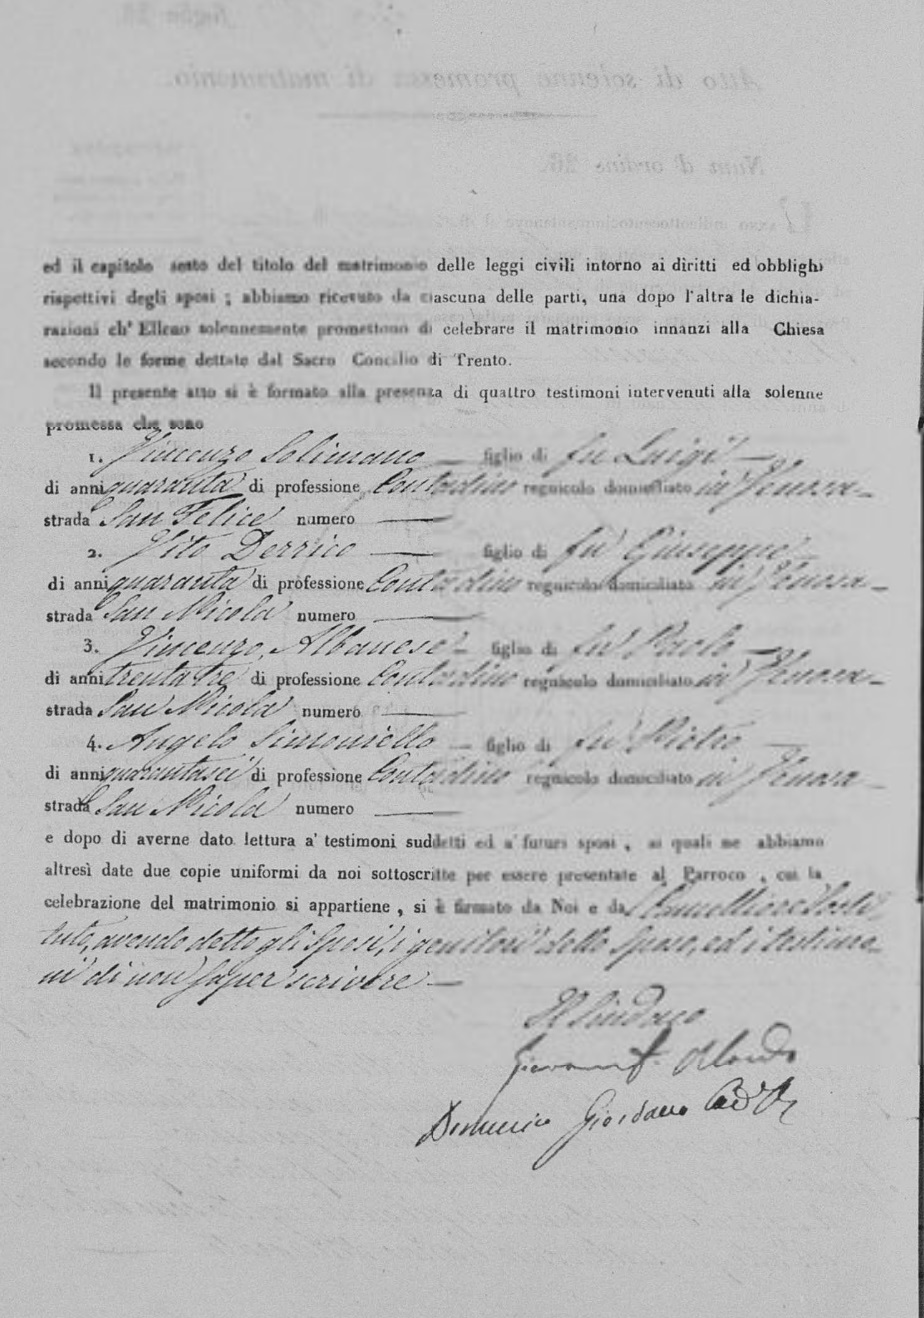 ed il capitolo sesto del titolo del matrimonio delle leggi civili intorno ai diritti ed obblighi
rispettivi degli sposi ; abbiamo ricevuto da ciascuna delle parti, una dopo l'altra le dichia-
razioni ch' Elleno solennemente promettono di celebrare il matrimonio innanzi alla Chiesa
secondo le forme dettate dal Sacro Concilio di Trento.
Il presente atto si è formato alla presenza di quattro testimoni intervenuti alla solenne
promessa che sono
1. Vincenzo Solimano — figlio di fu Luigi —
di anni quaranta di professione Contadino regnicolo domiciliato in Venosa —
strada San Felice numero —
2. Vito Derrico — figlio di fu Giuseppe —
di anni quaranta di professione Contadino regnicolo domiciliato in Venosa —
strada San Nicola numero —
3. Vincenzo Albanese — figlio di fu Paolo —
di anni trentatre di professione Contadino regnicolo domiciliato in Venosa —
strada San Nicola numero —
4. Angelo Simoniello — figlio di fu Pietro —
di anni quarantasei di professione Contadino regnicolo domiciliato in Venosa —
strada San Nicola numero —
e dopo di averne dato lettura a' testimoni suddetti ed a' futuri sposi , ai quali ne abbiamo
altresì date due copie uniformi da noi sottoscritte per essere presentate al Parroco , cui la
celebrazione del matrimonio si appartiene , si è firmato da Noi e dal Cancelliere Sosti
tuto, avendo detto gli Sposi, i genitori dello Sposo, ed i testimo-
ni di non saper scrivere —
Il Sindaco
Orlando
Domenico Giordano